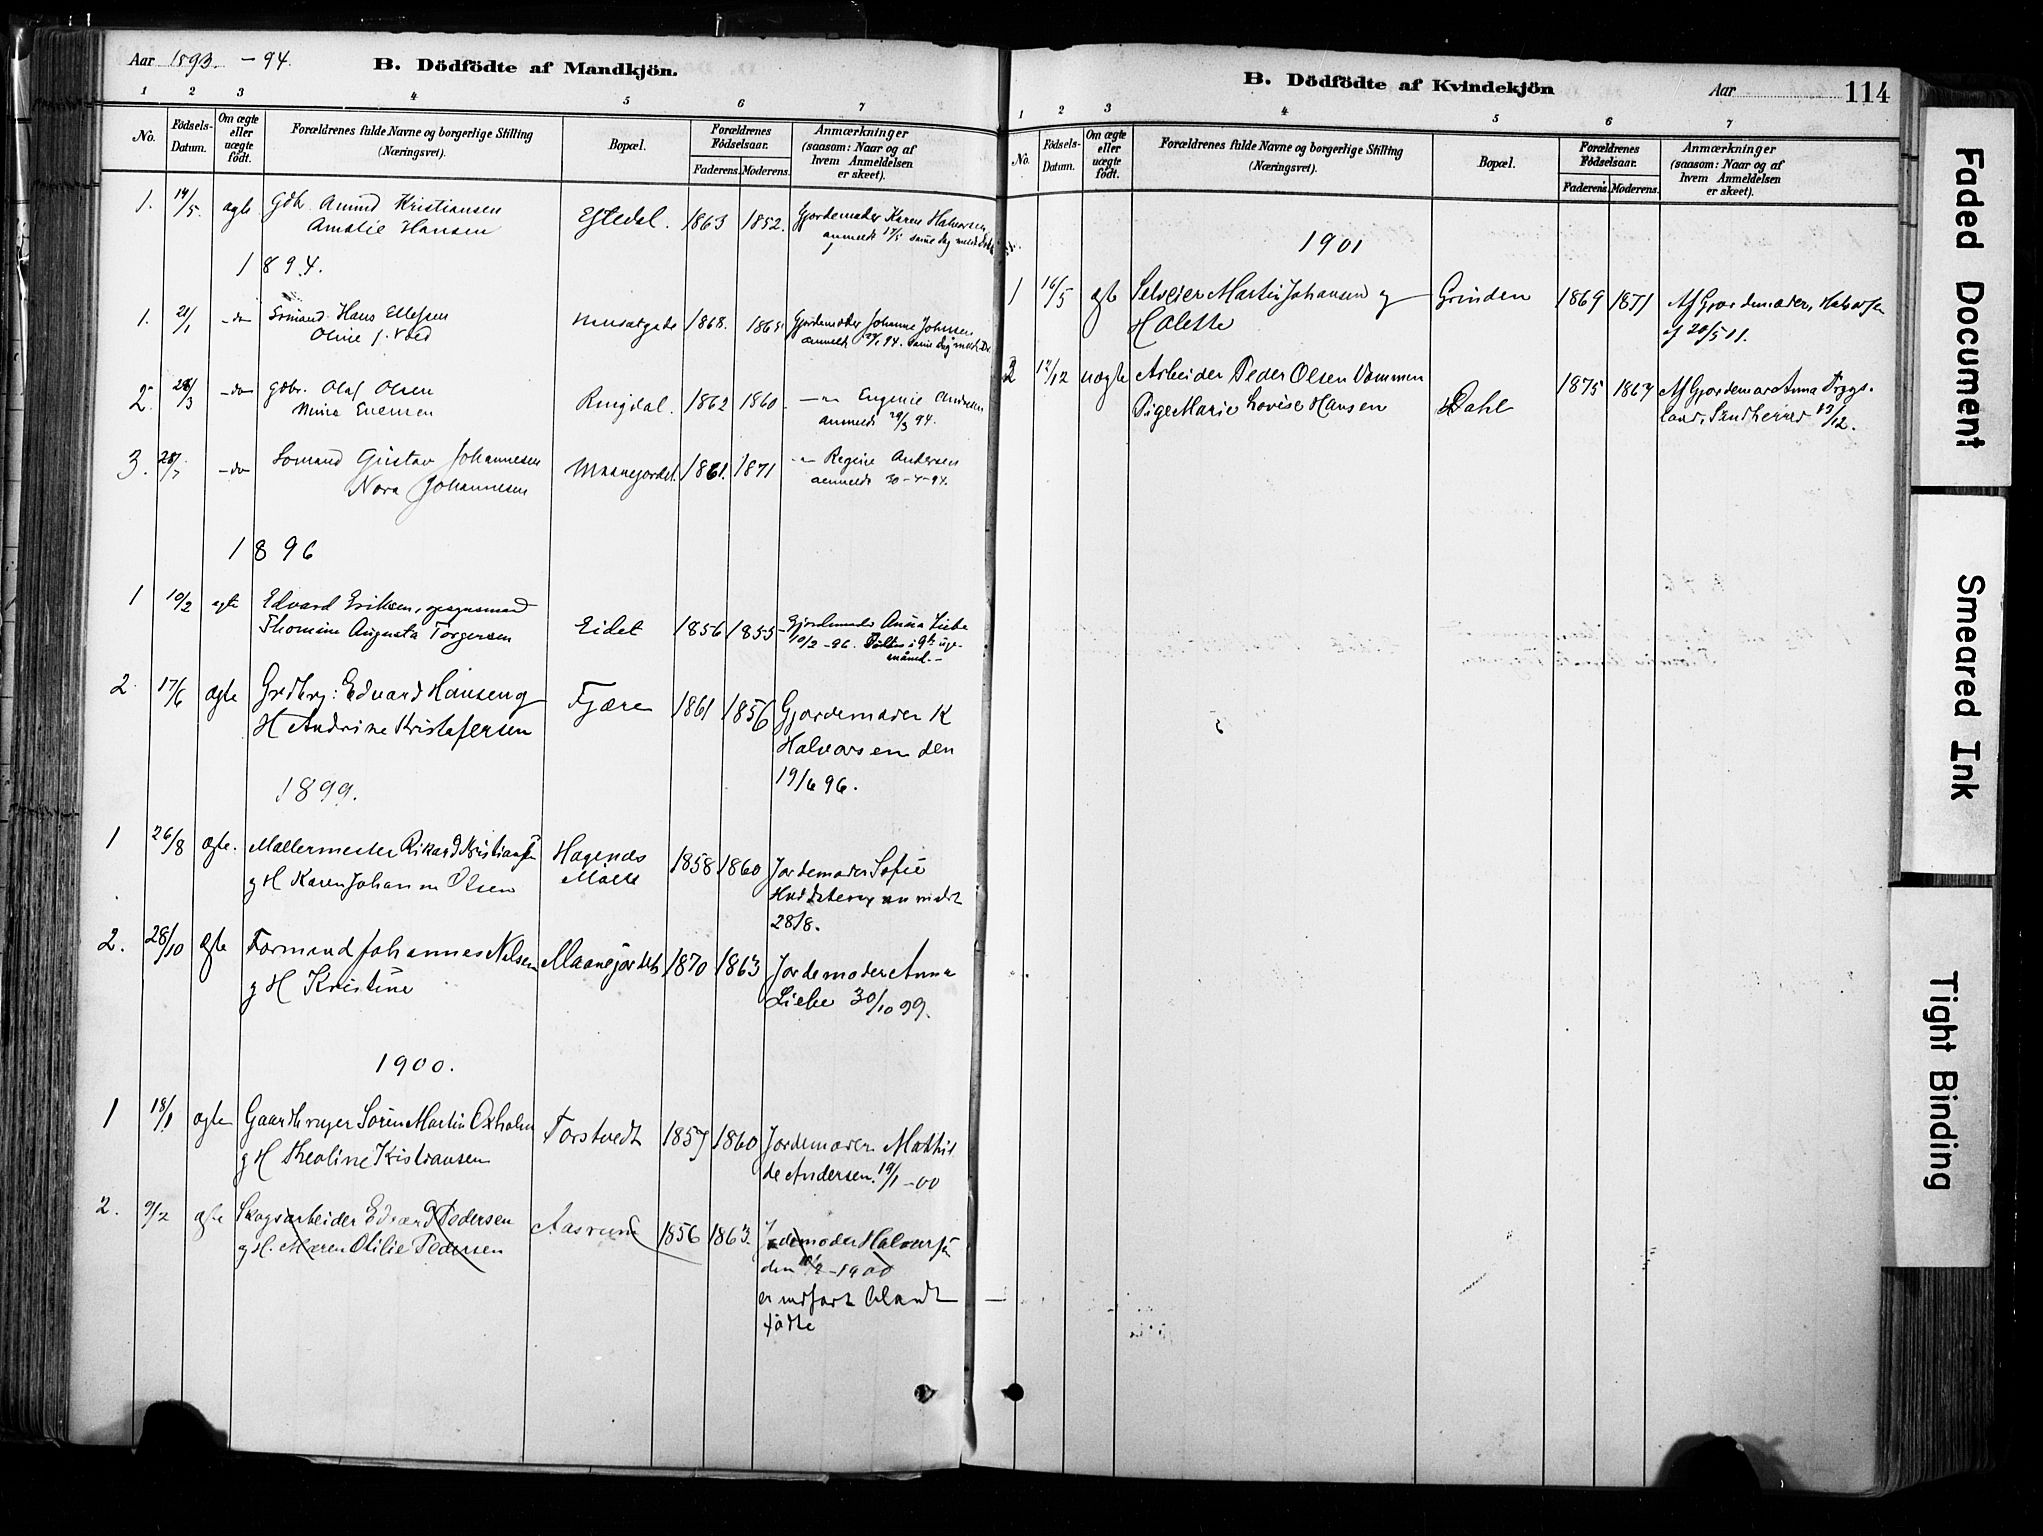 Aar 1893. - 94.
B. Dödfödte af Mandkjön.
1 2 3 4 5 6 7
No.
Födsels-Datum.
Om ægte eller uægte født.
Forældrenes fulde Navne og borgerlige Stilling (Næringsvei).
Bopæl.
Forældrenes Födselsaar.
Faderens. Moderens.
Anmærkninger (saasom: Naar og af hvem Anmeldelsen er skeet).
1. 14/5. ægte Gdbr. Amund Kristiansen 1863 1852. Gjordemoder Karen Halvorsen
Amalie Hansen anmeldt 17/5 samme dag
1894.
1. 21/1 -do Sømand Hans Ellefsen 1868. Gjordemoder Johanne Johnsen
Oline J. Vold anmeldt
2. 28/3 -do Gdbr. Olaf Olsen Ringdal. 1862 1860 -"- Eugenie Andersen
Mina Evensen anmeldt 29/3 94.
3. 28/7 -do Sømand Gustav Johannesen Maanejordet. 1861. 1871 -"- Regine Andersen
Nora Johannesen anmeldt 30-7-94.
1896
1 10/2 ægte Edvard Eriksen, Eidet 1856 1855 Gjordemoder Anna Liebe
Thomine Augusta Torgersen 10/2 -96.
2. 17/6 ægte Grdbrg: Edvard Hansen og Fjære 1861 1856 Gjordemoder K
H Andrine Kristofersen Halvorsen den
19/6 96.
1899.
1 26/8 ægte. Møllermester Rikard Kristiansen 1858 1860 Jordemoder Sofie
g H Karen Johanne Olsen Mølle anmeldt
28/8.
2. 28/10 ægte Formand Johannes Nelsen Maanejordet 1870 1863 Jordemoder Anna
g H Kristine Liebe 30/10 99.
1900.
1 18/1 ægte Gaardbruger Søren Martin Oxholm Torstvedt 1857 1860 Jordemoder Mathil
g H Theoline Kristiansen de Andersen. 19/1 -00
2. 9/2 ægte Skogsarbeider Edvard Pedersen Aasrum 1856 1863. Jordemoder Halvorsen
g H. Maren Otilie Pedersen den 10/2 -1900
er indført blandt
fødte
B. Dödfödte af Kvindekjön
Aar 114
1 2 3 4 5 6 7
No.
Födsels-Datum.
Om ægte eller uægte födt.
Forældrenes fulde Navne og borgerlige Stilling (Næringsvei).
Bopæl.
Forældrenes Födselsaar.
Faderens. Moderens.
Anmærkninger (saasom: Naar og af hvem Anmeldelsen er skeet).
1901
1 16/5 ægte Selveier Martin Johansen og Grinden 1869 1871 Af Gjordemoder, Halvorsen
Halette af 20/5 01.
2 12/12 uægte Arbeider Peder Olsen Vommen 1875 1867 Af Gjordemor Anna
Pige Marie Lovise Hansen Dahl land, Sandherred 13/12.
Faded Document
Smeared Ink
Tight Binding